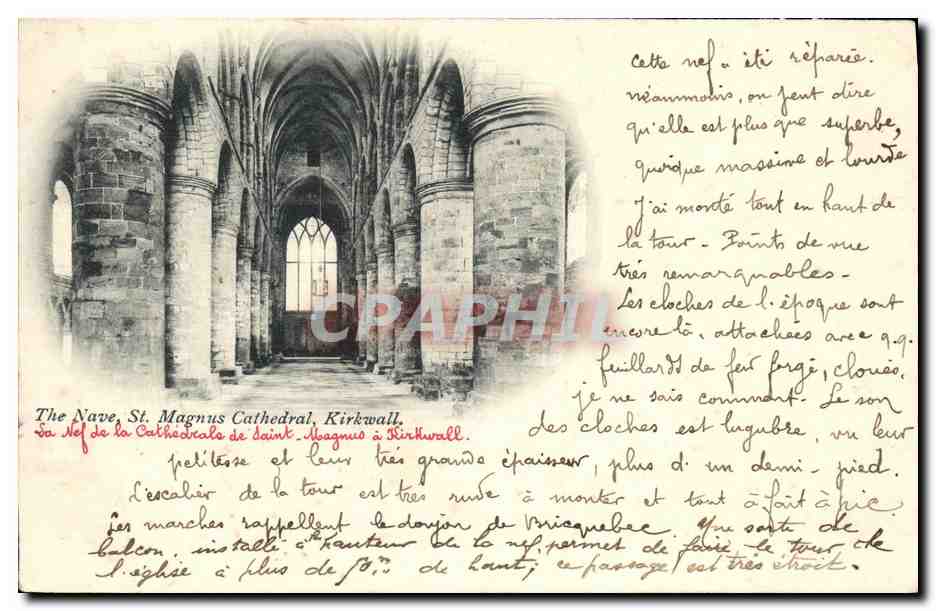 cette nef a été réparée.
néanmoins, on peut dire
qu'elle est plus que superbe,
quoique massive et lourde
J'ai monté tout en haut de
la tour - Points de vue
très remarquables -
Les cloches de l'époque sont
encore là, attachées avec q.q.
feuillards de fer forgé, cloués,
je ne sais comment. Le son
des cloches est lugubre, vu leur
petitesse et leur très grande épaisseur, plus d'un demi-pied.
L'escalier de la tour est très rude à monter et tout à fait à pic
Les marches rappellent le donjon de Bricquebec. Une sorte de
balcon, installé à la hauteur de la nef, permet de faire le tour de
l'église à plus de 50m de haut; ce passage est très étroit.
The Nave, St. Magnus Cathedral, Kirkwall.
La Nef de la Cathédrale de Saint-Magnus à Kirkwall.
CPAPHIL